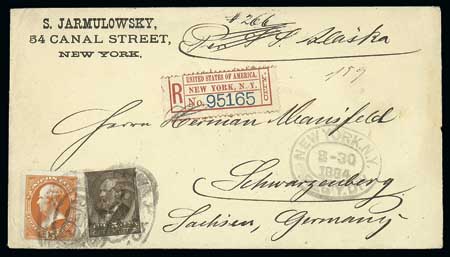 S. JARMULOWSKY,
54 CANAL STREET,
NEW YORK.
# 266
Per S. S. Alaska
UNITED STATES OF AMERICA.
R
NEW YORK, N.Y.
No. 95165
Herrn Herman Mansfeld
NEW YORK N.Y.
8-30
1884
Schwarzenberg
Sachsen, Germany